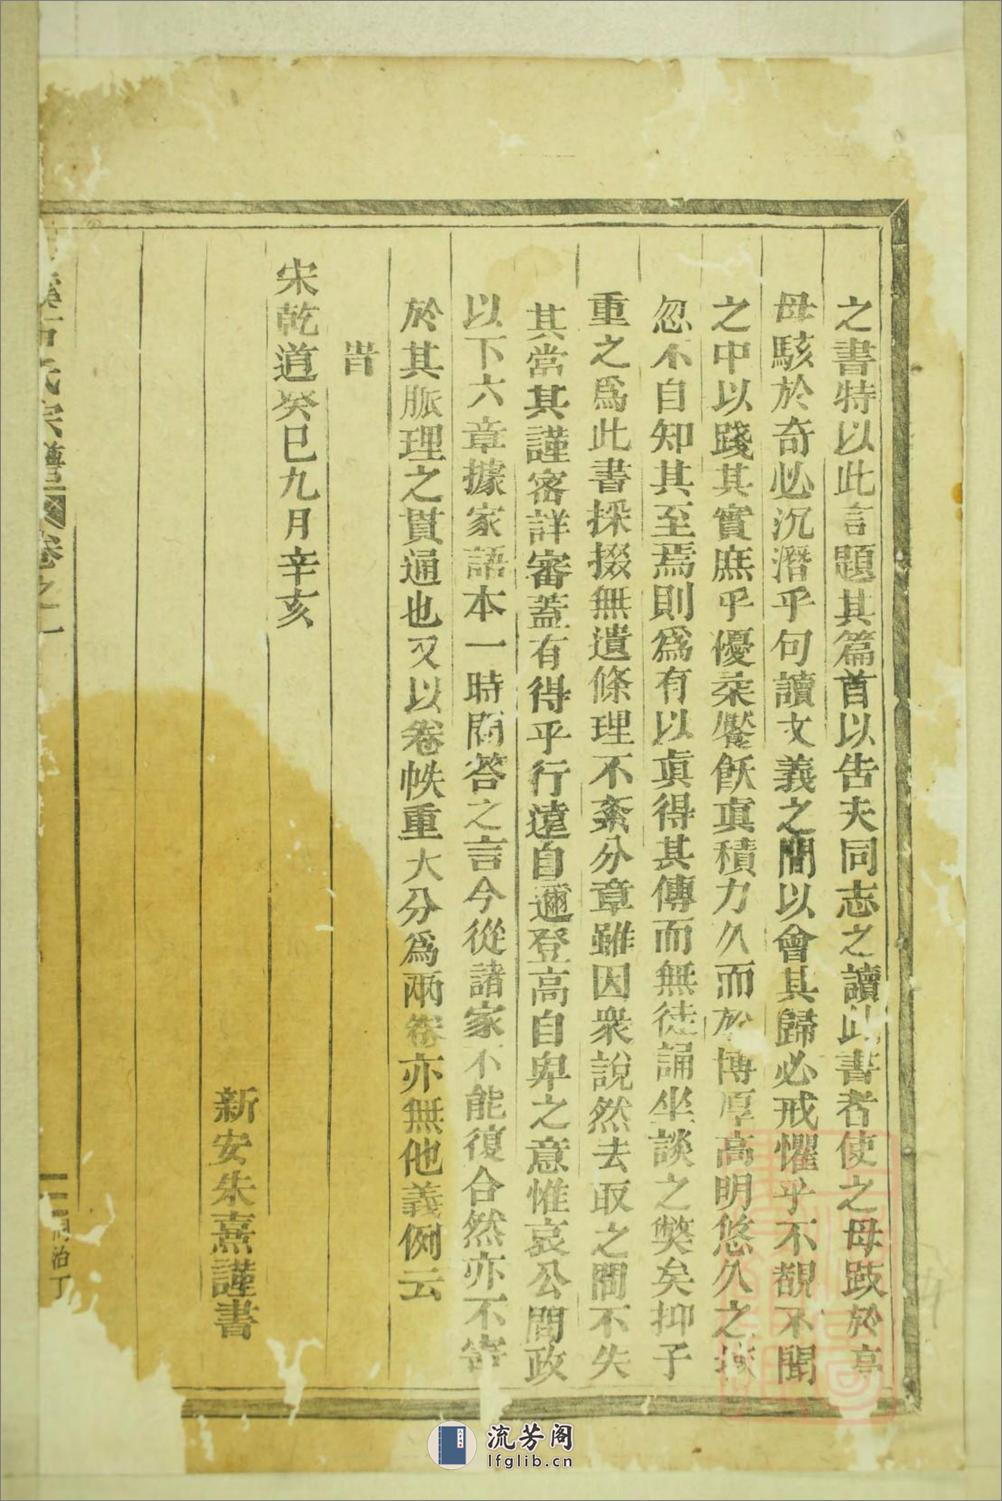 之書特以此言題其篇首以告夫同志之讀此書者使之毋跂於高
毋駭於奇必沉潛乎句讀文義之間以會其歸必戒懼乎不覩不聞
之中以踐其實庶乎優柔饜飫眞積力久而於博厚高明悠久之域
忽不自知其至焉則爲有以眞得其傳而無徒誦坐談之獘矣抑子
重之爲此書採掇無遺條理不紊分章雖因衆說然去取之間不失
其當其謹密詳審蓋有得乎行遠自邇登高自卑之意惟哀公問政
以下六章據家語本一時問答之言今從諸家不能復合然亦不害
於其脈理之貫通也又以卷帙重大分爲兩卷亦無他義例云
旹
宋乾道癸巳九月辛亥
新安朱熹謹書
氏宗譜
卷之一
流芳阁
lfglib.cn